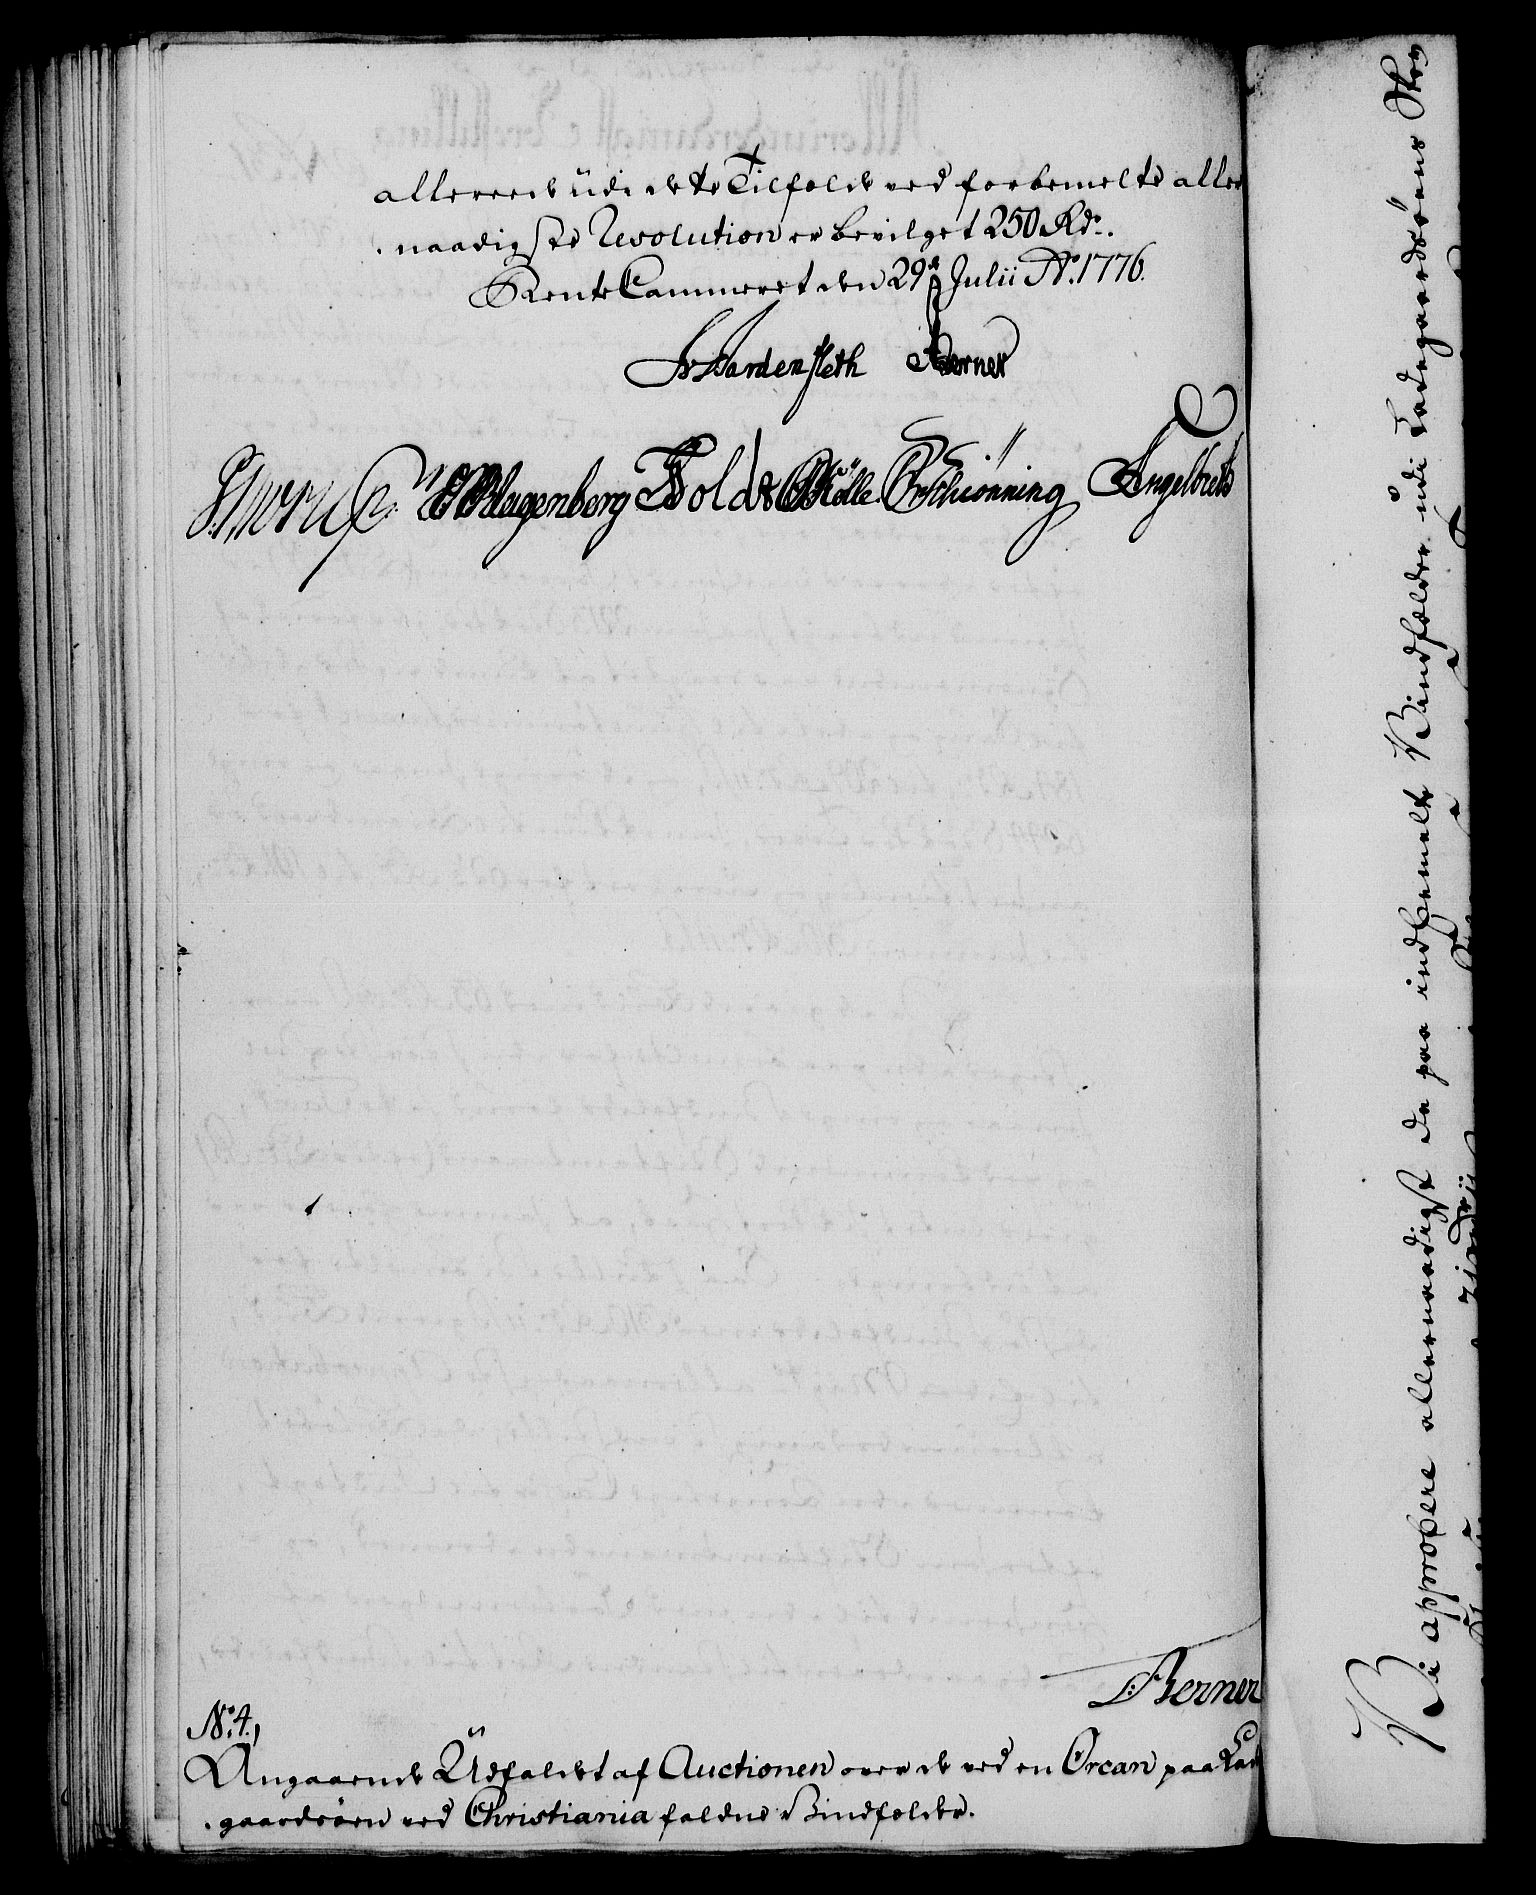 allereede udi dette Tilfælde ved forbemelte aller
naadigste Resolution er bevilget 250 Rdr.
Rente Cammeret den 29de Julii Ao. 1776.
Wardensleth Berner
Klagenberg Holdt Mölle Schiönning Engelbreth
Berner
No. 4.,
Angaaende Udfaldet af Auctionen over de ved en Orcan paa Lad
gaardsöen ved Christiania faldne Vindfælder.
Vi approbere allernaadigst de paa indbemelte Vindfælder udi Ladegaardsöens Skov